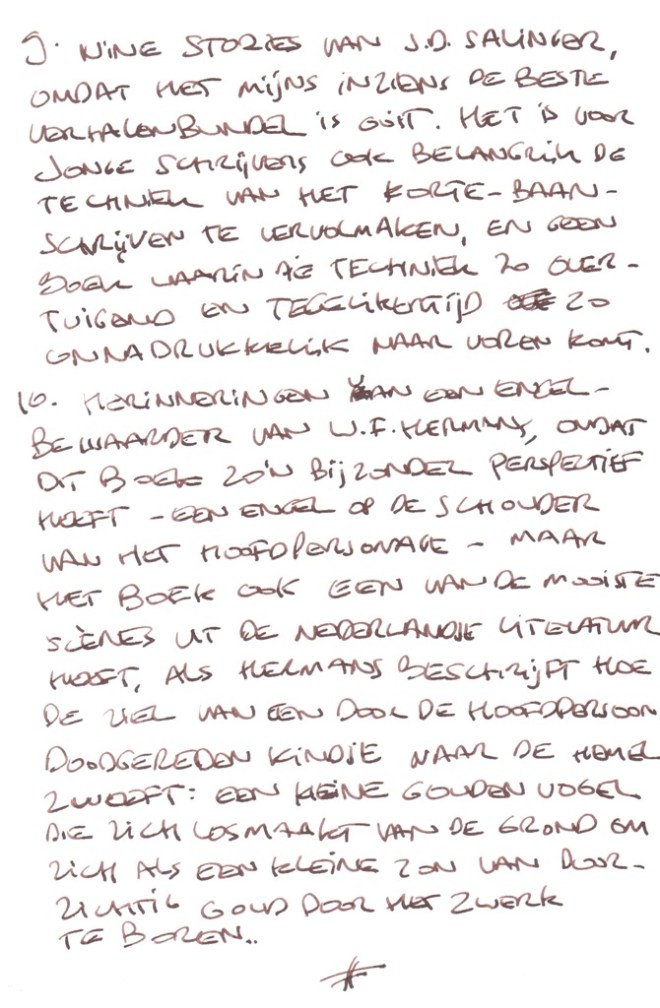 9. NINE STORIES VAN J.D. SALINGER,
OMDAT HET MIJNS INZIENS DE BESTE
VERHALENBUNDEL IS OOIT. HET IS VOOR
JONGE SCHRIJVERS OOK BELANGRIJK DE
TECHNIEK VAN HET KORTE-BAAN-
SCHRIJVEN TE VERVOLMAKEN, EN GEEN
BOEK WAARIN DIE TECHNIEK ZO OVER-
TUIGEND EN TEGELIJKERTIJD ZO
ONNADRUKKELIJK NAAR VOREN KOMT.
10. HERINNERINGEN VAN EEN ENGEL-
BEWAARDER VAN W.F. HERMANS, OMDAT
DIT BOEK ZO'N BIJZONDER PERSPECTIEF
HEEFT - EEN ENGEL OP DE SCHOUDER
VAN HET HOOFDPERSONAGE - MAAR
HET BOEK OOK EEN VAN DE MOOISTE
SCÈNES UIT DE NEDERLANDSE LITERATUUR
HEEFT, ALS HERMANS BESCHRIJFT HOE
DE ZIEL VAN EEN DOOR DE HOOFDPERSOON
DOODGEREDEN KINDJE NAAR DE HEMEL
ZWEEFT: EEN KLEINE GOUDEN VOGEL
DIE ZICH LOSMAAKT VAN DE GROND OM
ZICH ALS EEN KLEINE ZON VAN DOOR-
ZICHTIG GOUD DOOR HET ZWERK
TE BOREN..